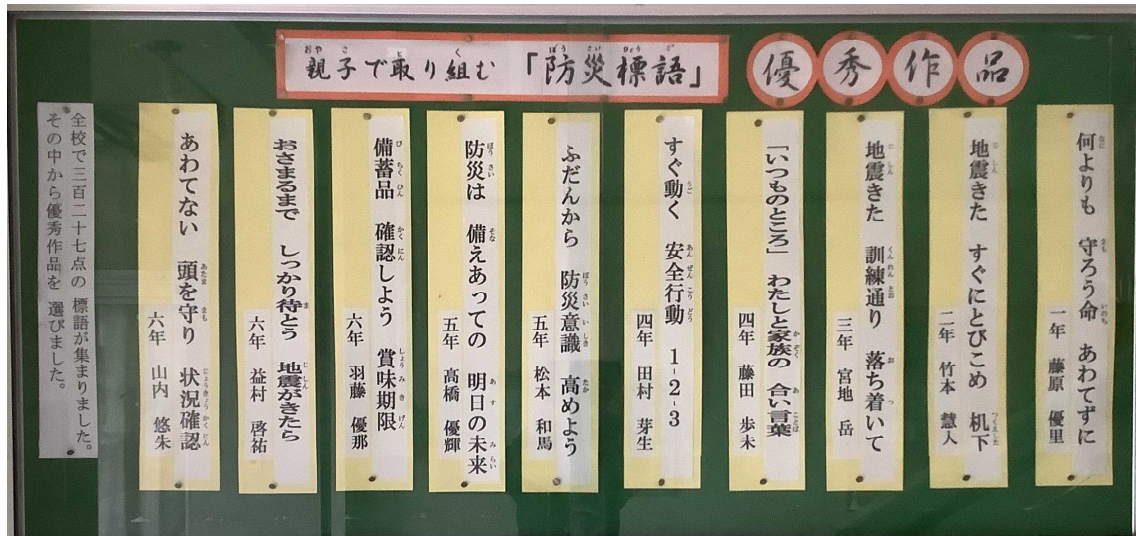 親子で取り組む「防災標語」
優秀作品
何よりも 守ろう命 あわてずに
一年 藤原 優里
地震きた すぐにとびこめ 机下
二年 竹本 慧人
地震きた 訓練通り 落ち着いて
三年 宮地 岳
「いつものところ」 わたしと家族の 合い言葉
四年 藤田 歩未
すぐ動く 安全行動 1-2-3
四年 田村 芽生
ふだんから 防災意識 高めよう
五年 松本 和馬
防災は 備えあっての 明日の未来
五年 髙橋 優輝
備蓄品 確認しよう 賞味期限
六年 羽藤 優那
おさまるまで しっかり待とう 地震がきたら
六年 益村 啓祐
あわてない 頭を守り 状況確認
六年 山内 悠朱
全校で三百二十七点の 標語が集まりました。
その中から優秀作品を 選びました。